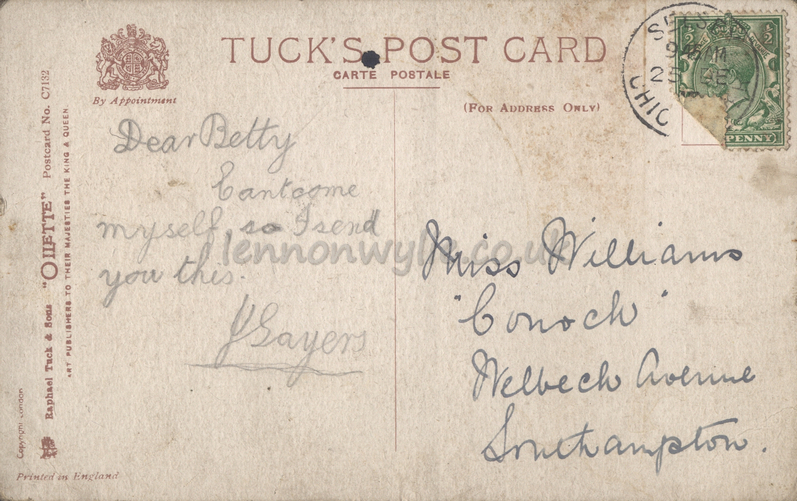 TUCK'S POST CARD
CARTE POSTALE
By Appointment
(FOR ADDRESS ONLY)
Dear Betty
Cant come
myself, so I send
you this.
J Sayers
Miss Williams
"Conoch"
Welbech Avenue
Southampton.
lennonwylie.co.uk
PENNY
Raphael Tuck & Sons "OILETTE" Postcard No. C7132
ART PUBLISHERS TO THEIR MAJESTIES THE KING & QUEEN
Copyright London
Printed in England